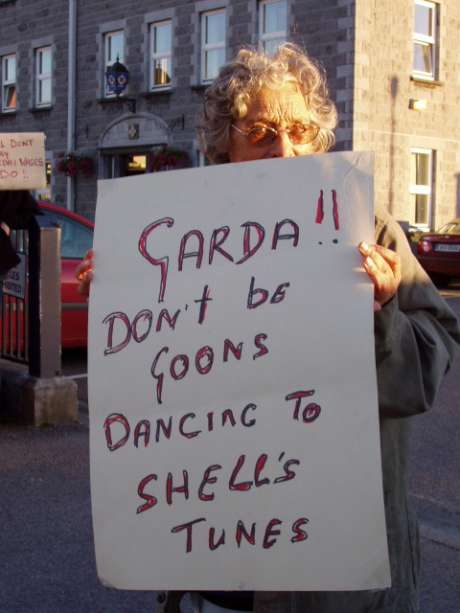 GARDA!!
DON'T BE
GOONS
DANCING TO
SHELL'S
TUNES
DONT
WAGES
DO!!